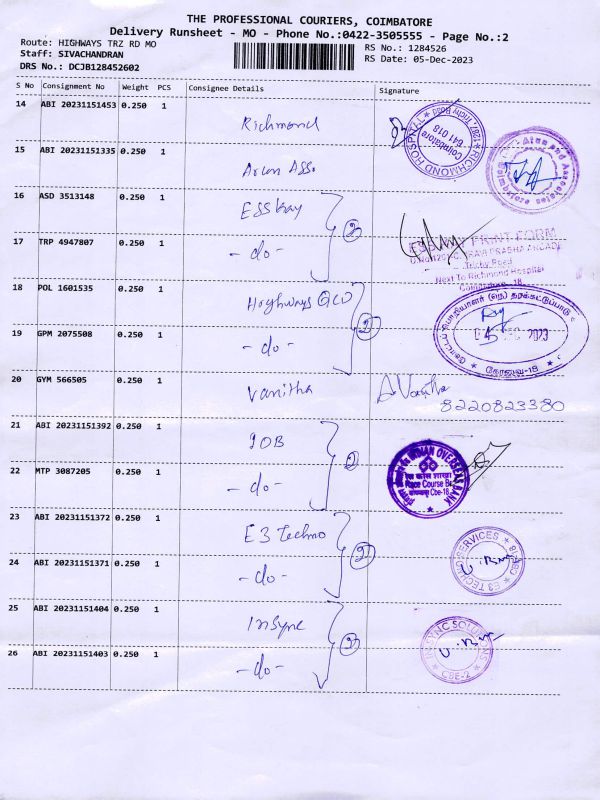 THE PROFESSIONAL COURIERS, COIMBATORE
Delivery Runsheet - MO - Phone No.:0422-3505555 - Page No.:2
Route: HIGHWAYS TRZ RD MO
RS No.: 1284526
Staff: SIVACHANDRAN
RS Date: 05-Dec-2023
DRS No.: DCJB128452602
S No Consignment No Weight PCS Consignee Details Signature
14 ABI 20231151453 0.250 1 Richmond
RICHMOND HOSPITAL
Coimbatore
641 018
15 ABI 20231151335 0.250 1 Arun Asso.
Arun and Associates
16 ASD 3513148 0.250 1 ESSkay
17 TRP 4947807 0.250 1 -do- 2
PRINT FORM
Trichy Road
Next To Richmond Hospital
Coimbatore - 18
18 POL 1601535 0.250 1 Highways QCD
19 GPM 2075508 0.250 1 -do- 2
தரக்கட்டுப்பாடு
2023
கோவை-18
20 GYM 566505 1 Vanitha
8220823380
21 ABI 20231151392 0.250 1 IOB
22 MTP 3087205 0.250 1 -do- 2
INDIAN OVERSEAS BANK
Race Course Br.
Cbe-18
23 ABI 20231151372 0.250 1 E3 Techno
24 ABI 20231151371 0.250 1 -do- 2
E3 TECHNO SERVICES
CBE-18
25 ABI 20231151404 0.250 1 Insync
26 ABI 20231151403 0.250 1 -do- 2
INSYNC SOLUTIONS
CBE-2